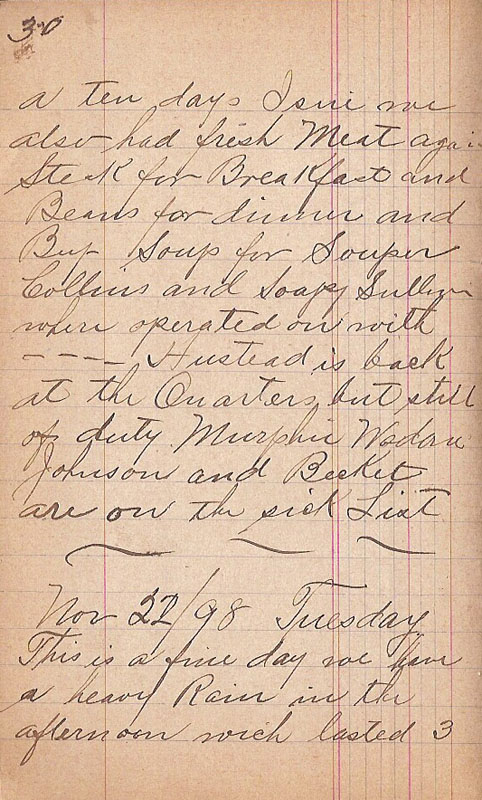 30
a ten days Isue we
also had fresh Meat again
Steak for Breakfast and
Beans for dinner and
Soup for Souper
Collins and Soapy
where operated on with
---- Hustead is back
at the Quarters but still
of duty. Murphie
Johnson and Becket
are on the sick List
Nov 22/98 Tuesday
This is a fine day we have
a heavy Rain in the
afternoon wich lasted 3